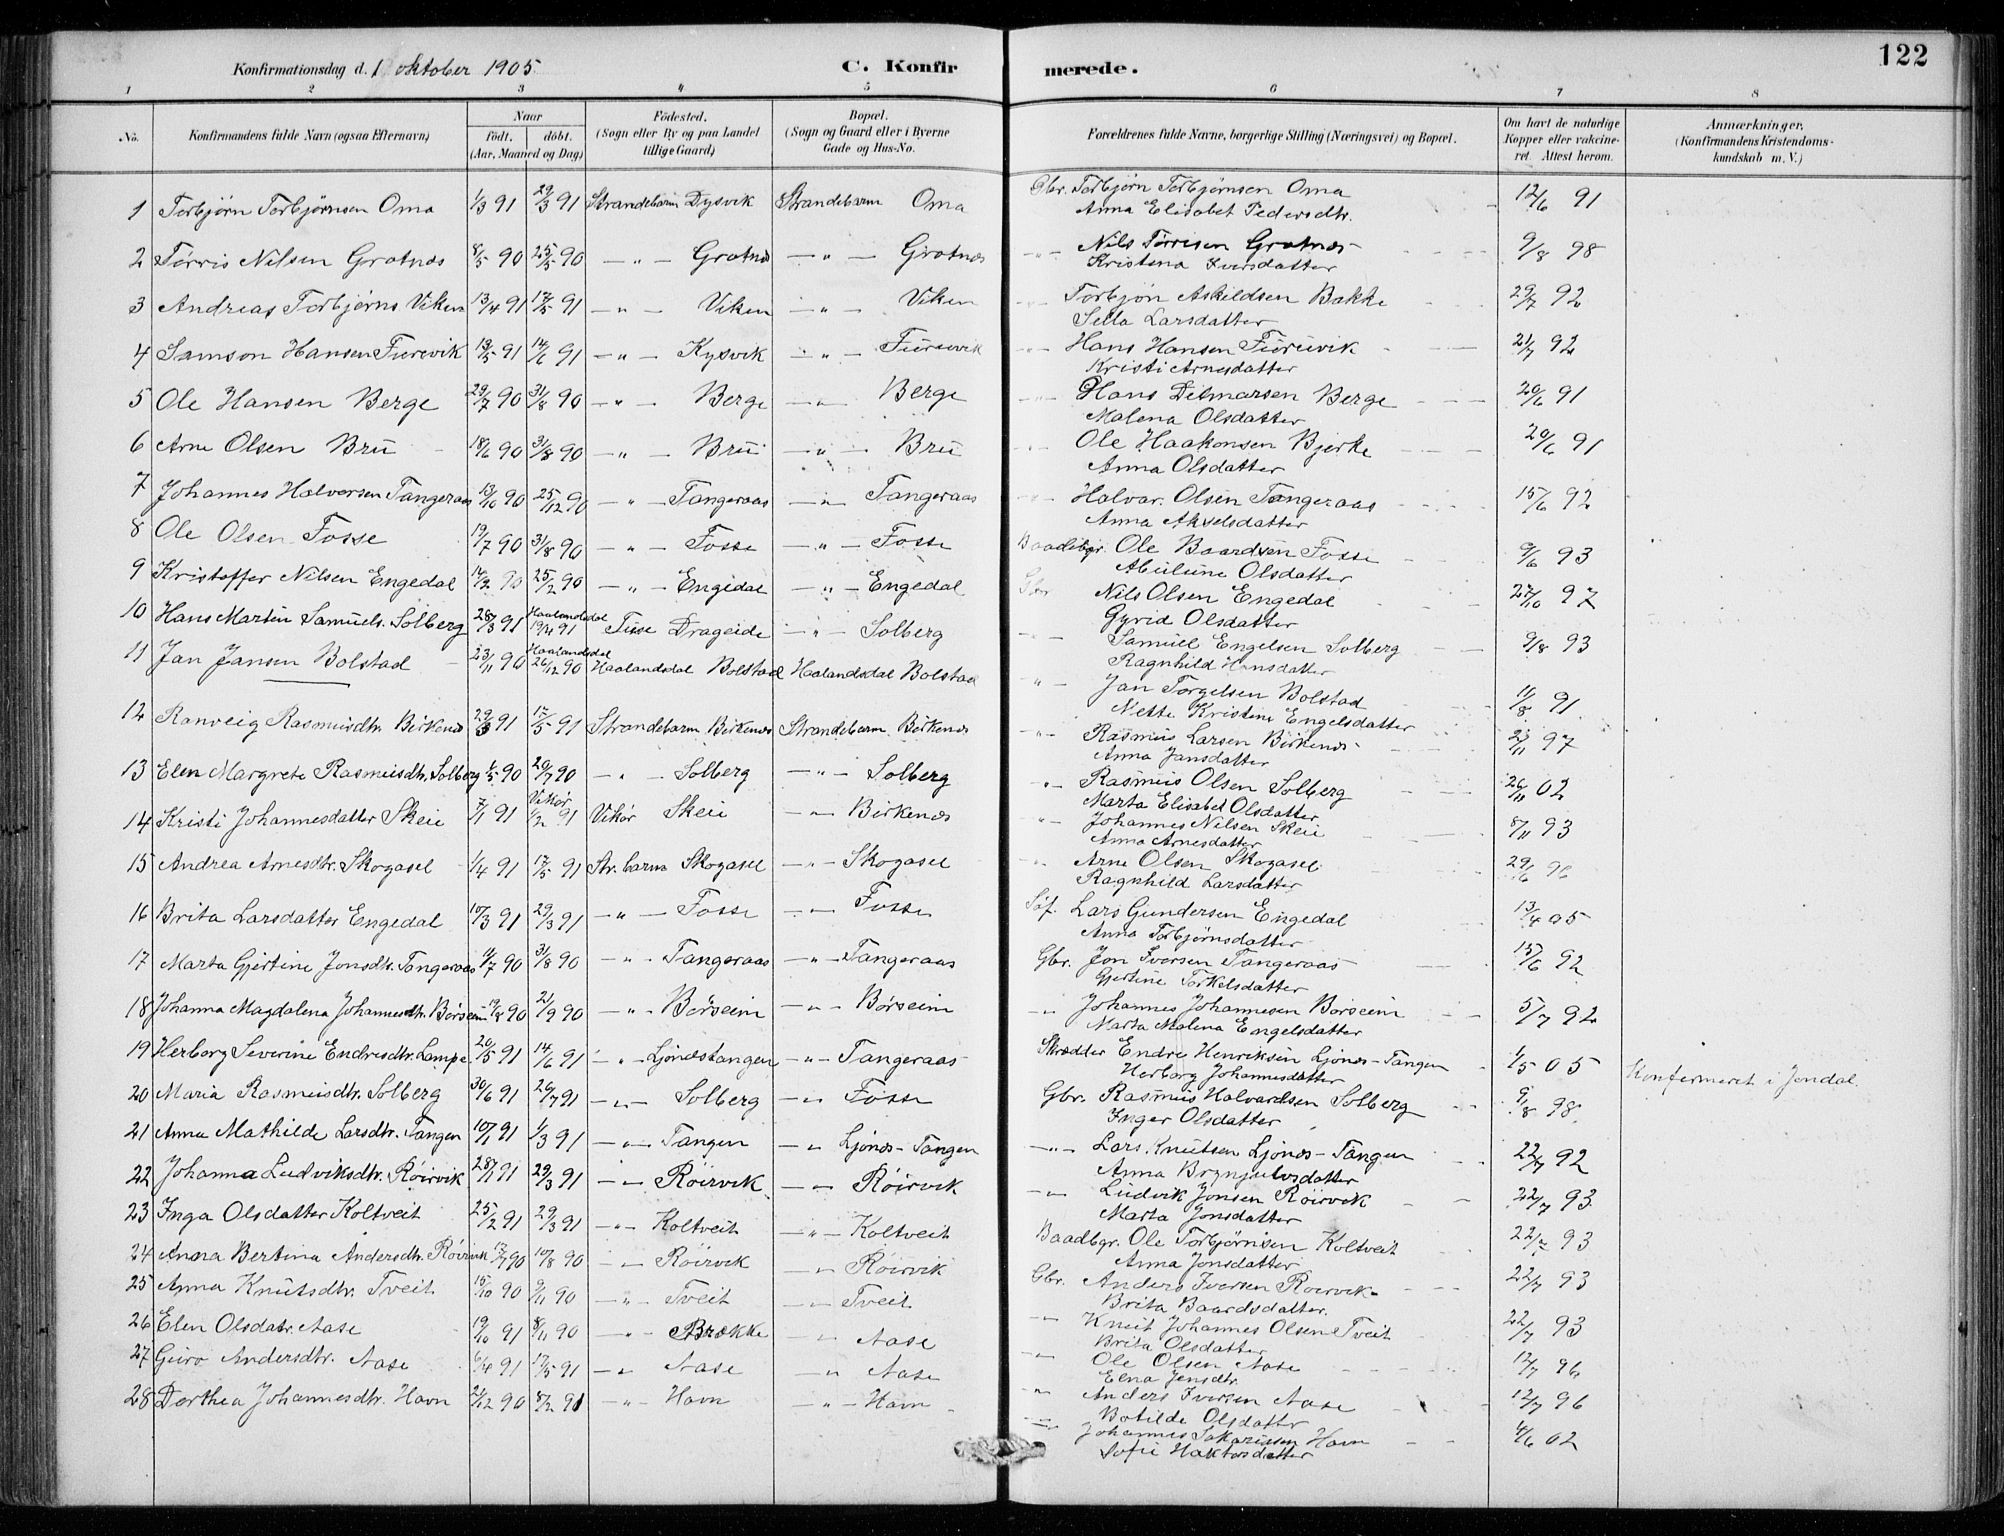 122
Konfirmationsdag d. 1 oktober 1905. C. Konfir merede.
1 2 3 4 5 6 7 8
No. Konfirmandens fulde Navn (ogsaa Efternavn) Naar født. døbt. (Aar, Maaned og Dag) Fødested. (Sogn eller By og paa Landet tillige Gaard) Bopæl. (Sogn og Gaard eller i Byerne Gade og Hus-No. Forældrenes fulde Navne, borgerlige Stilling (Næringsvei) og Bopæl. Om havt de naturlige Kopper eller vakcineret. Attest herom. Anmærkninger. (Konfirmandens Kristendomskundskab m. V.)
1 Torbjørn Torbjørnsen Oma 1/3 91 29/3 91 Strandebarm Dysvik Strandebarm Oma Gbr. Torbjørn Torbjørnsen Oma 12/6 91
Anna Elisabet Pedersdtr.
2 Tørris Nilsen Grotnes 8/5 90 25/5 90 — " — Grotnes — " — Grotnes — " — Nils Tørrisen Grotnes 9/8 98
Kristina Iversdatter
3 Andreas Torbjørns Viken 13/4 91 17/5 91 — " — Viken — " — Viken Torbjøn Askildsen Bakke 29/7 92
Sella Larsdatter
4 Samson Hansen Furevik 13/5 91 14/6 91 — " — Kysvik — " — Furuvik Hans Hansen Furuvik 21/7 92
Kristi Arnesdatter
5 Ole Hansen Berge 29/7 90 31/8 90 — " — Berge — " — Berge Hans Detmarsen Berge 20/6 91
Malena Olsdatter
6 Arne Olsen Bru 18/6 90 31/8 90 — " — Bru — " — Bru Ole Haakonsen Bjerke 20/6 91
Anna Olsdatter
7 Johannes Halvorsen Tangeraas 13/10 90 25/12 90 — " — Tangeraas — " — Tangeraas Halvar Olsen Tangeraas 15/6 92
Anna Akselsdatter
8 Ole Olsen Fosse 19/7 90 31/8 90 — " — Fosse — " — Fosse Baadebgr. Ole Baardsen Fosse 9/6 93
Abelune Olsdatter
9 Kristoffer Nilsen Engedal 90 25/2 90 — " — Engidal — " — Engedal Nils Olsen Engedal 27/10 97
Gyrid Olsdatter
10 Hans Martin Samuels. Solberg 28/3 91 Haalandsdal 19/4 91 Fusse Drageide — " — Solberg Samuel Engelsen Solberg 9/8 93
Ragnhild Hansdatter
11 Jan Jansen Bolstad 23/11 90 Haalandsdal 26/12 90 Haalandsdal Bolstad Haalandsdal Bolstad — " — Jan Torgelsen Bolstad 11/8 91
Nette Kristine Engelsdatter
12 Ranveig Rasmusdtr. Birkenes 29/3 91 17/5 91 Strandebarm Birkenes Strandebarm Birkenes — " — Rasmus Larsen Birkenes 97
Anna Jansdatter
13 Elen Margrete Rasmusdtr. Solberg 1/5 90 20/7 90 — " — Solberg — " — Solberg — " — Rasmus Olsen Solberg 26/11 02
Marta Elisabet Olsdatter
14 Kristi Johannesdatter Skeie 7/1 91 Vikør 1/2 91 Vikør Skeie — " — Birkenes Johannes Nilsen Skeie 8/11 93
Anna Arnesdatter
15 Andrea Arnesdtr. Skogasel 1/4 91 17/5 91 Str.barm Skogasel — " — Skogasel Arne Olsen Skogasel 29/6 96
Ragnhild Larsdatter
16 Brita Larsdatter Engedal 10/3 91 29/3 91 — " — Fosse — " — Fosse Søf. Lars Gundersen Engedal 13/4 05
Anna Torbjørnsdatter
17 Marta Gjertine Jonsdtr. Tangeraas 90 31/8 90 — " — Tangeraas — " — Tangeraas Gbr. Jon Iversen Tangeraas 15/6 92
Gjertine Torkelsdatter
18 Johanna Magdalena Johannesdtr. Børseim 19/8 90 21/9 90 — " — Børseim — " — Børseim — " — Johannes Johannesen Børseim 5/7 92
Marta Malena Engelsdatter
19 Herborg Severine Endresdtr. Lampe 20/5 91 14/6 91 — " — Ljønestangen — " — Tangeraas Skrædder Endre Henriksen Ljønes-Tangen 1/5 05 Konfermeret i Jondal.
Herborg Johannesdatter
20 Maria Rasmusdtr. Solberg 30/6 91 26/7 91 — " — Solberg — " — Fosse Gbr. Rasmus Halvardsen Solberg 9/8 98
Inger Olsdatter
21 Anna Mathilde Larsdtr. Tangen 10/1 91 1/3 91 — " — Tangen — " — Ljønes-Tangen — " — Lars Knutsen Ljønes-Tangen 22/7 92
Anna Brynjulvsdatter
22 Johanna Ludviksdtr. Røirvik 28/1 91 29/3 91 — " — Røirvik — " — Røirvik — " — Ludvik Jonsen Røirvik 22/7 93
Marta Jonsdatter
23 Inga Olsdatter Koltveit 25/2 91 29/3 91 — " — Koltveit — " — Koltveit Baadbgr. Ole Torbjørnsen Koltveit 22/7 93
Anna Jonsdatter
24 Anna Bertina Andersdtr. Røirvik 17/7 90 10/8 90 — " — Røirvik — " — Røirvik Gbr. Anders Iversen Roirvik 22/7 93
Brita Baardsdatter.
25 Anna Knutsdtr. Tveit 15/10 90 9/11 90 — " — Tveit — " — Tveit — " — Knut Johannes Olsen Tveit 22/7 93
Brita Olsdatter
26 Elen Olsdatr. Aase 19/10 91 8/11 90 — " — Brække — " — Aase — " — Ole Olsen Aase 12/7 96
Elna Jensdtr.
27 Guro Andersdtr. Aase 6/4 91 17/5 91 — " — Aase — " — Aase — " — Anders Iversen Aase 12/7 96
Botilde Olsdatter
28 Dorthea Johannesdtr. Havn 21/12 90 8/2 91 — " — Havn — " — Havn — " — Johannes Sakariasen Havn 4/6 02
Sofie Haktorsdatter